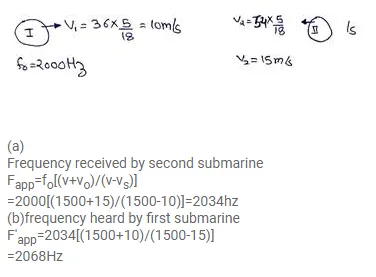 I → V₁ = 36 × 5/18 = 10m/s
V₂ = 54 × 5/18 ← II /s
f₀ = 2000Hz
V₂ = 15m/s
(a)
Frequency received by second submarine
Fapp=fo[(v+vo)/(v-vs)]
=2000[(1500+15)/(1500-10)]=2034hz
(b)frequency heard by first submarine
F'app=2034[(1500+10)/(1500-15)]
=2068Hz